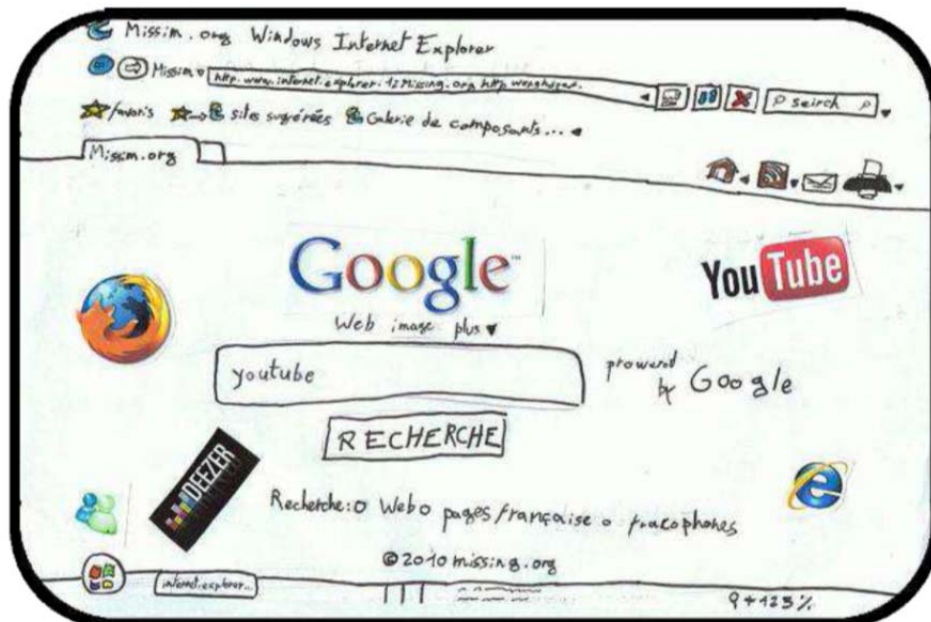 Missim.org Windows Internet Explorer
Missim http.www.internet.explorer.12Missing.org http
seirch
favoris sites sugrérées Galerie de composants...
Missim.org
Google™
You Tube
Web image plus
youtube
prowered by Google
RECHERCHE
DEEZER
Recherche: Web pages française fracophones
©2010 missing.org
internet.explorer...
123%